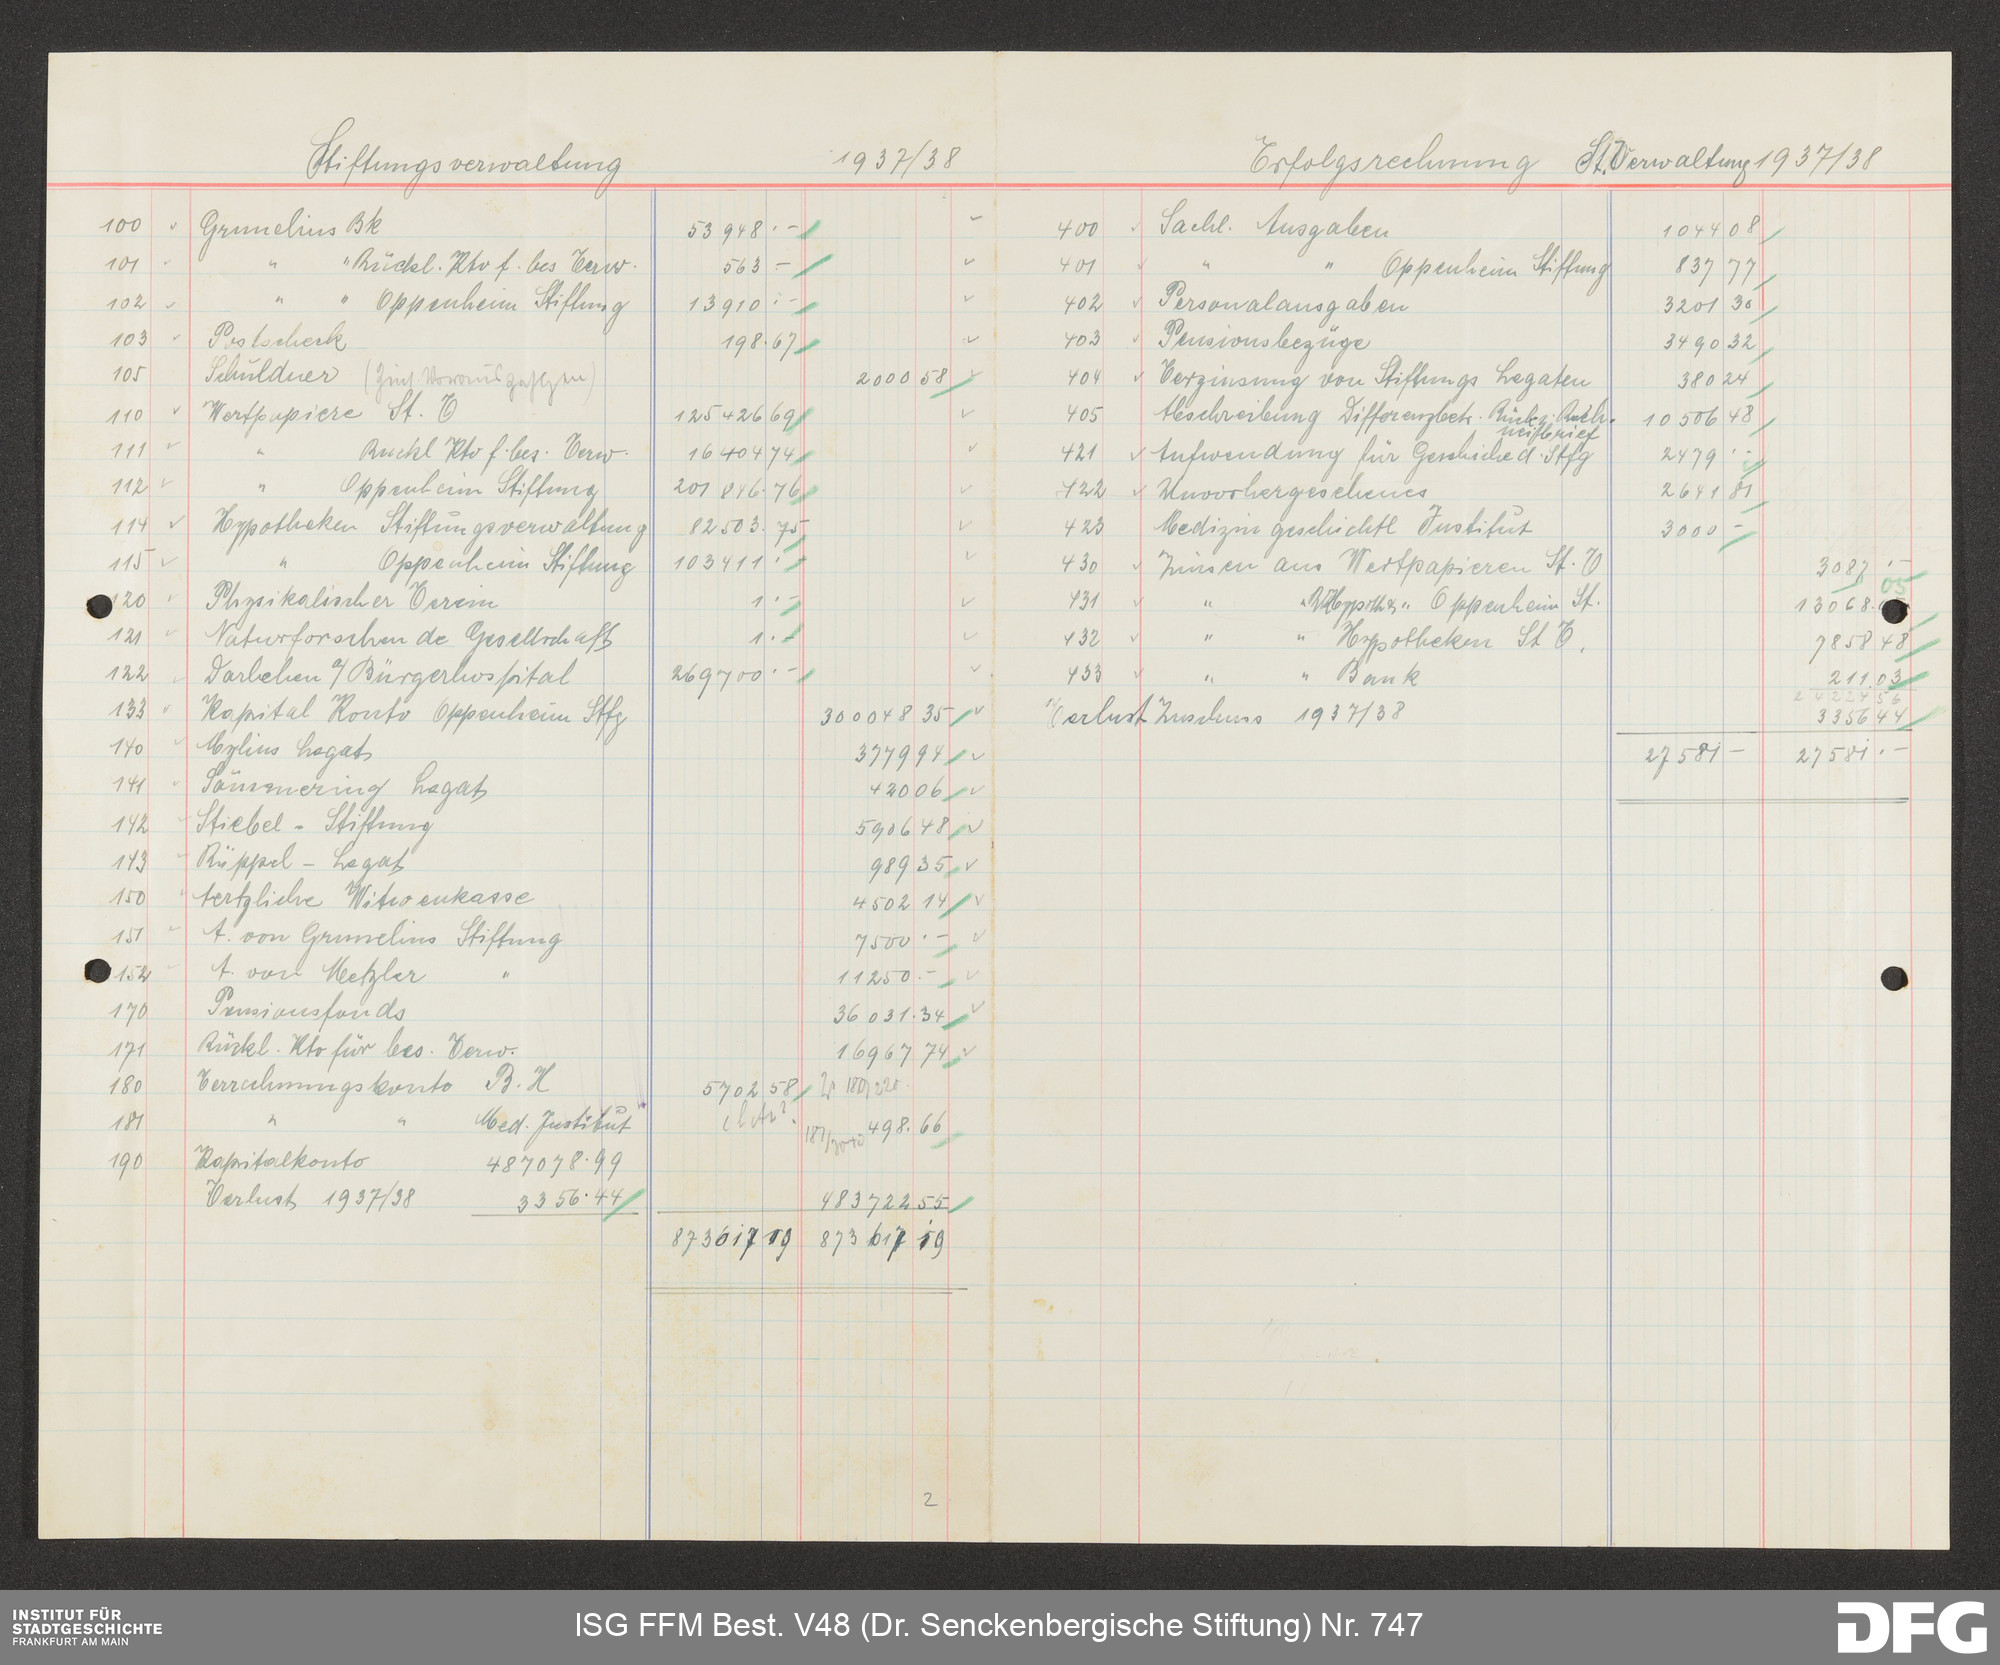 Stiftungsverwaltung 1937/38
100 Grunelius Bk 53948.-
101 " " Rückl. Kto f. bes Verw. 563 -
102 " " Oppenheim Stiftung 13910.-
103 Postscheck 198.67
105 Schuldner 2000 58
110 Wertpapiere St. V 125426 69
111 " Rückl Kto f. bes. Verw. 16404 74
112 " Oppenheim Stiftung 201 846.76
114 Hypotheken Stiftungsverwaltung 82503.75
115 " Oppenheim Stiftung 103411.-
120 Physikalischer Verein 1.-
121 Naturforschende Gesellschaft 1.-
122 Darlehen a/ Bürgerhospital 269700.-
133 Kapital Konto Oppenheim Stfg 300048 35
140 Mylius Legat 3779 94
141 Sömmering Legat 420 06
142 Stiebel - Stiftung 5906 48
143 Rüppel - Legat 989 35
150 Aertzliche Witwenkasse 4502 14
151 A. von Grunelius Stiftung 7500.-
152 A. von Metzler " 11250.-
170 Pensionsfonds 36 031.34
171 Rückl. Kto für bes. Verw. 16967 74
180 Verrechnungskonto B. H 5702 58
181 " " Med. Institut 498.66
190 Kapitalkonto 487078.99
Verlust 1937/38 3356.44 483722 55
873617 19 873 617 19
2
Erfolgsrechnung St. Verwaltung 1937/38
400 Sachl. Ausgaben 1044 08
401 " " Oppenheim Stiftung 837 77
402 Personalausgaben 3201 30
403 Pensionsbezüge 3490 32
404 Verzinsung von Stiftungs Legaten 380 24
405 Abschreibung Differenzbetr. 10506 48
421 Aufwendung für Geschichte d. Stfg 2479.-
422 Unvorhergesehenes 2641 81
423 Medizin geschichtl Institut 3000 -
430 Zinsen aus Wertpapieren St. V 3087.-
431 " " Oppenheim St. 13068. 05
432 " " Hypotheken St V. 7858 48
433 " " Bank 211.03
24224 56
Verlust Zuschuss 1937/38 3356 44
27581 - 27581.-
INSTITUT FÜR
STADTGESCHICHTE
FRANKFURT AM MAIN
ISG FFM Best. V48 (Dr. Senckenbergische Stiftung) Nr. 747
DFG